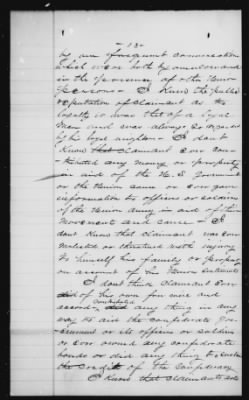 -13-
by our frequent conversations
which were both by ourselves and
in the presence of other Union
persons - I Know the public
reputation of claimant as to
loyalty it was that of a loyal
man and was always so regarded
by his loyal neighbors - I dont
Know that claimant ever con-
-tributed any money or property
in aid of the U.S. Government
or the Union cause or ever gave
information to officers or soldiers
of the Union Army in aid of their
movements and cause - I
dont Know that claimant was ever
molested or threatened with injury
to himself his family or property
on account of his Union sentiments
I dont think claimant ever
did of his own free will and
accord, contribute did anything in any
way to aid the confederate Gov-
-ernment or its officers or soldiers
or ever owned any confederate
bonds or did anything to sustain
the credit of the Confederacy
I Know that claimants